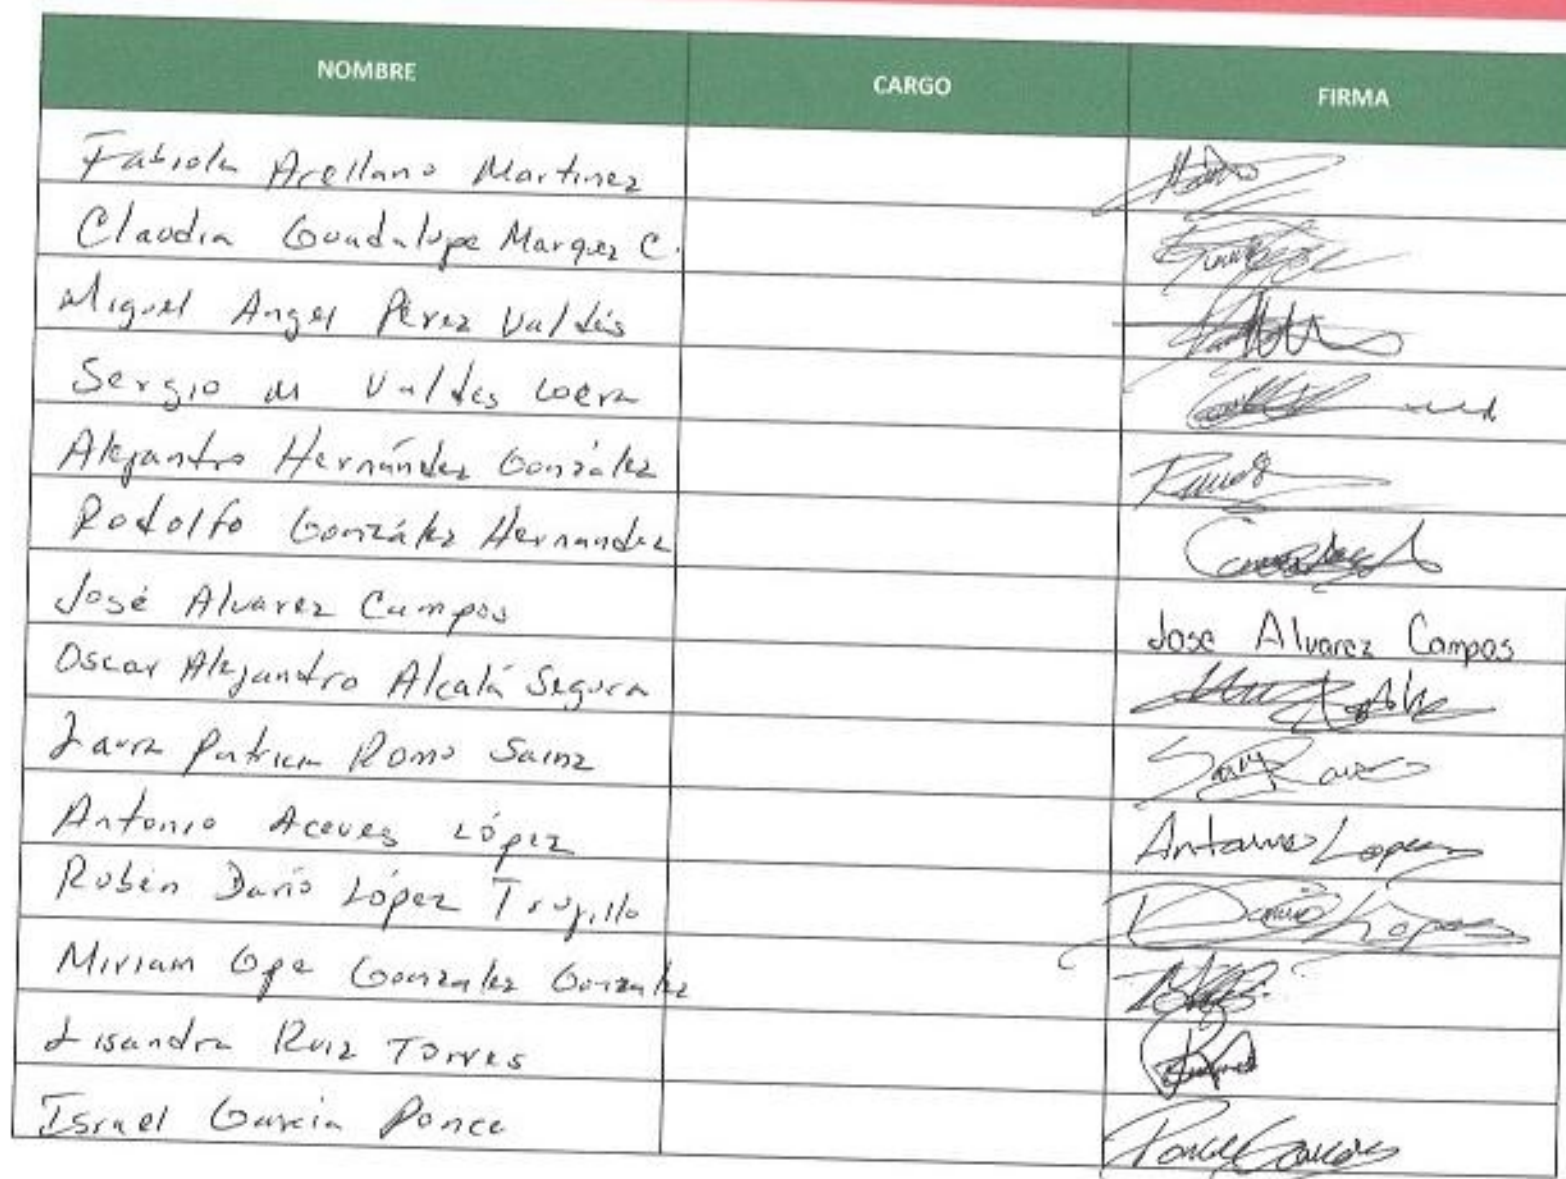 NOMBRE CARGO FIRMA
Fabiola Arellano Martinez
Claudia Guadalupe Marquez C.
Miguel Angel Pérez Valdés
Sergio M Valdes Loera
Alejandro Hernández González
Rodolfo González Hernandez
José Alvarez Campos Jose Alvarez Campos
Oscar Alejandro Alcalá Segura
Laura Patricia Romo Sainz
Antonio Aceves López Antonio Lopez
Rubén Darío López Trujillo Dario Lopez
Miriam Gpe Gonzalez Gonzalez
Lisandra Ruiz Torres
Israel García Ponce